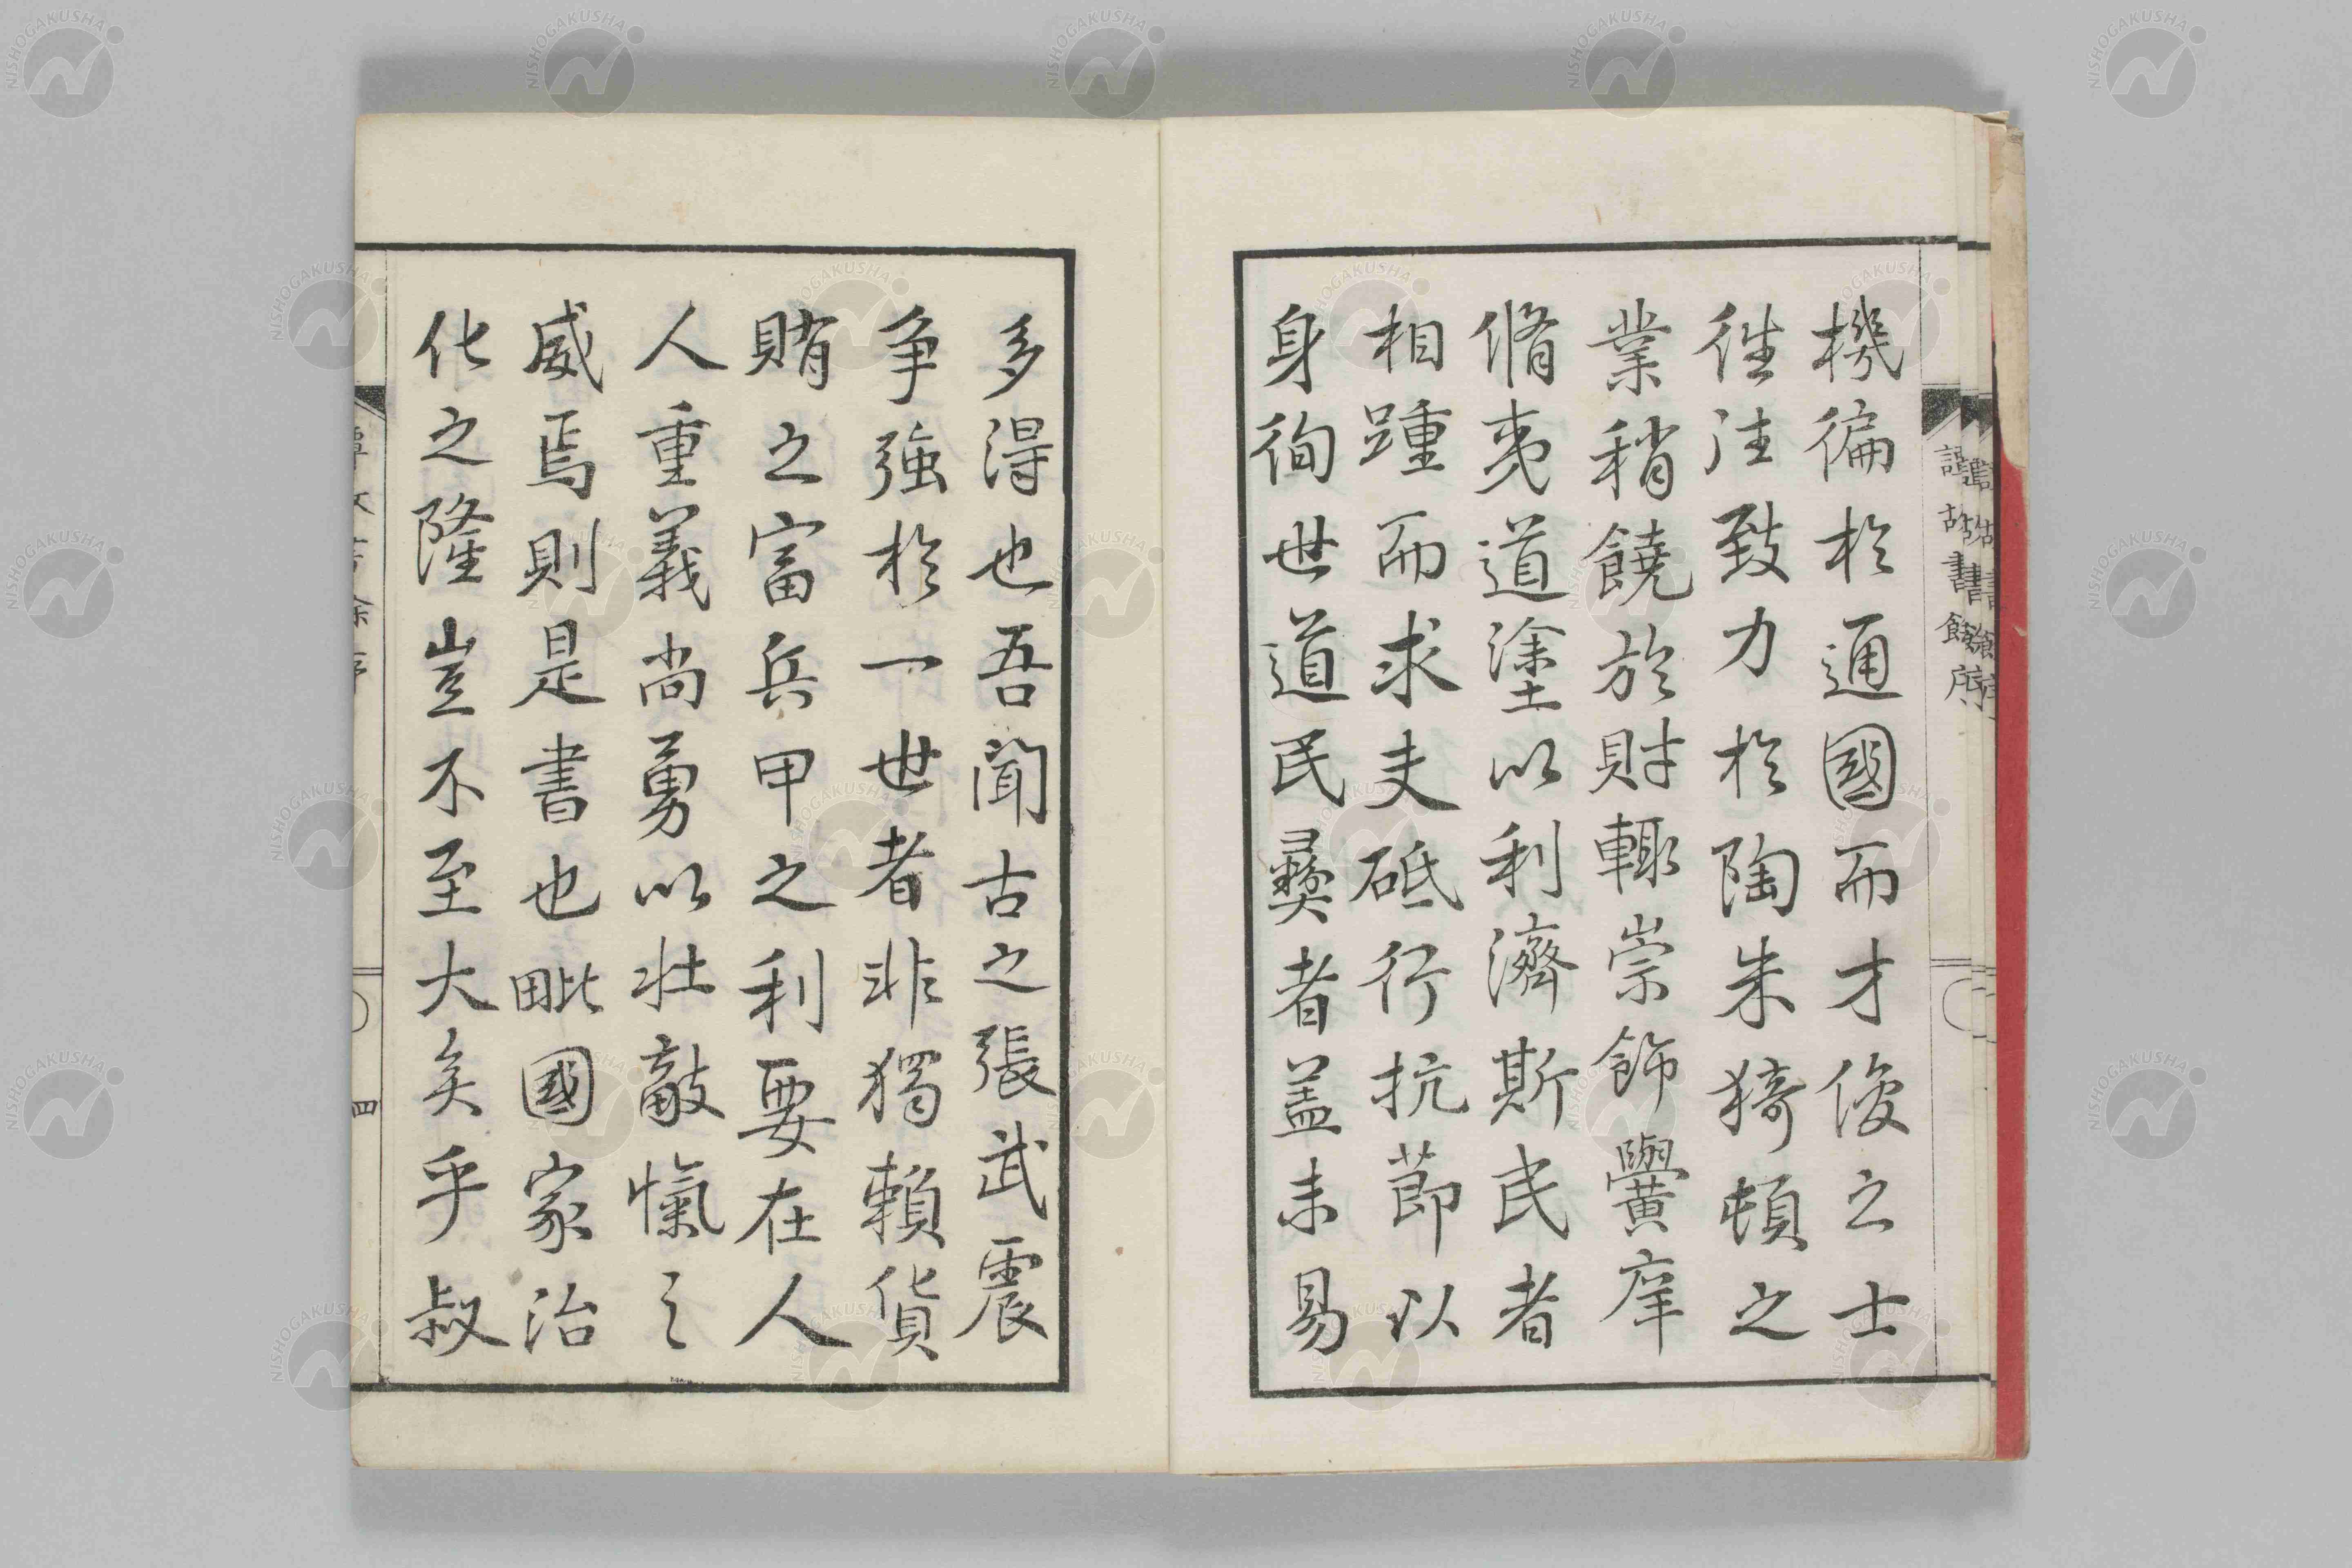 機徧於通國而才俊之士
徃徃致力於陶朱猗頓之
業稍饒於財輙崇飾黌庠
脩夷道塗以利濟斯民者
相踵而求夫砥行抗節以
身徇世道民彝者盖未易
多得也吾聞古之張武震
争強於一世者非獨賴貨
賄之富兵甲之利要在人
人重義尚勇以壮敵愾之
威焉則是書也毗國家治
化之隆豈不至大矣乎叔
序
四
NISHOGAKUSHA